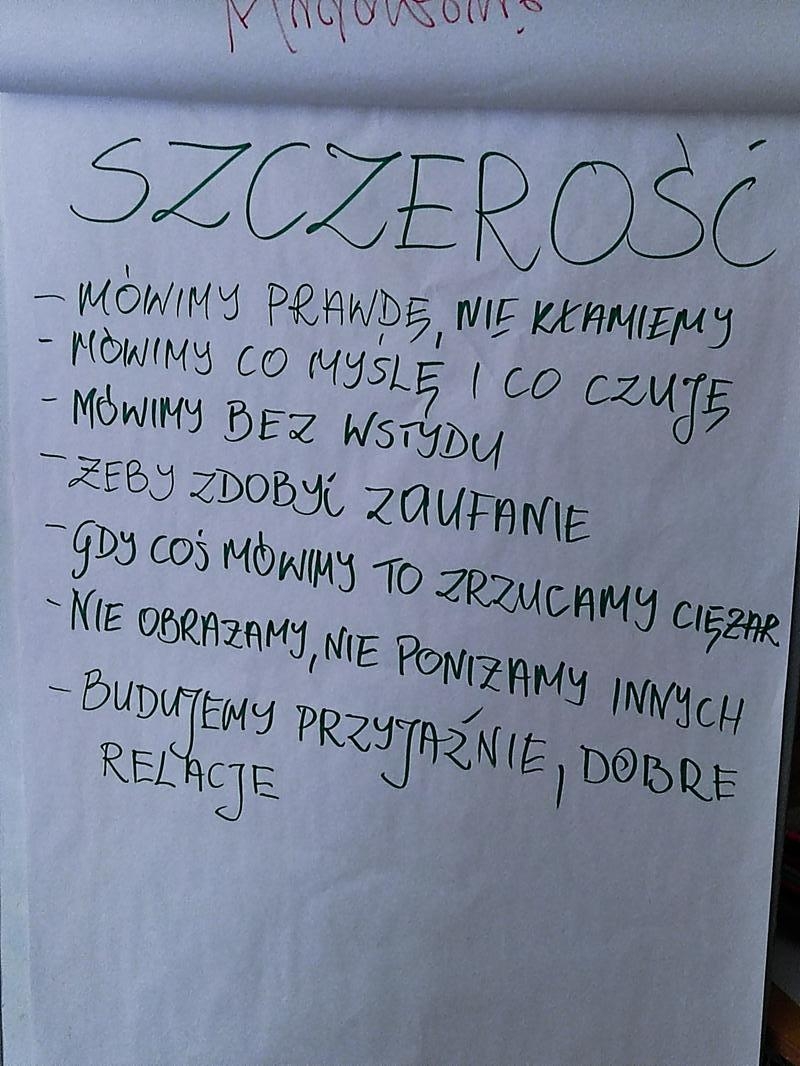 SZCZEROŚĆ
- MÓWIMY PRAWDĘ, NIE KŁAMIEMY
- MÓWIMY CO MYŚLĘ I CO CZUJĘ
- MÓWIMY BEZ WSTYDU
- ŻEBY ZDOBYĆ ZAUFANIE
- GDY COŚ MÓWIMY TO ZRZUCAMY CIĘŻAR
- NIE OBRAŻAMY, NIE PONIŻAMY INNYCH
- BUDUJEMY PRZYJAŹNIE, DOBRE
RELACJE